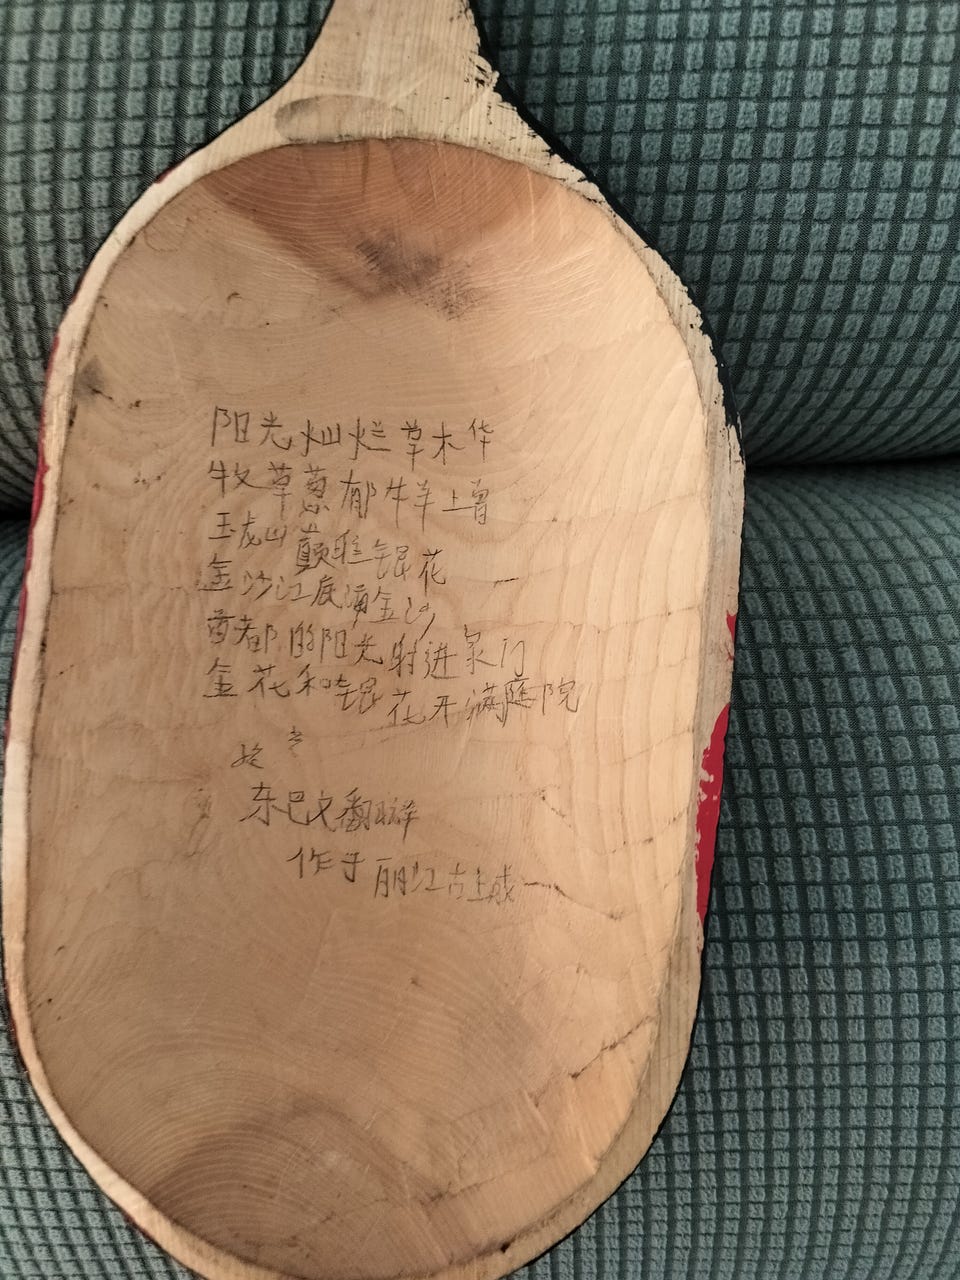 阳光灿烂草木华
牧草葱郁牛羊上曾
玉龙山巅 锟花
金沙江底 金沙
首都的阳光射进家门
金花和锟花开满庭院
东巴文翻译
作于丽江古城